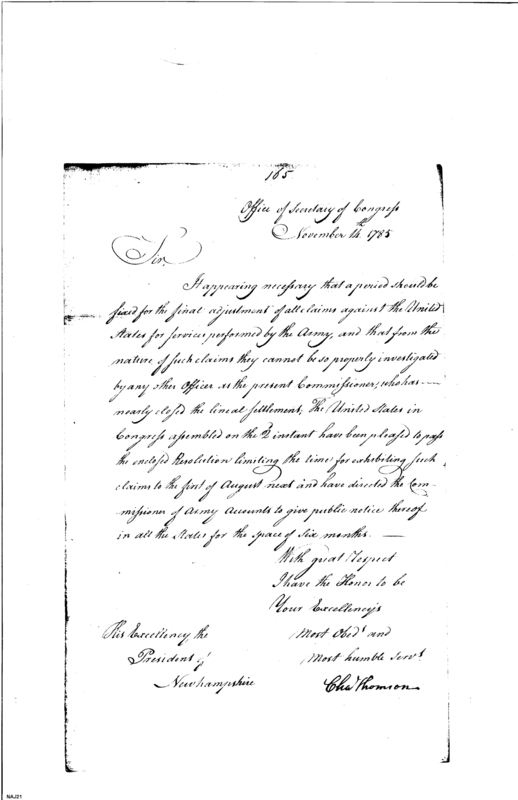 165
Office of Secretary of Congress
November 14th. 1785
Sir,
It appearing necessary that a period should be
fixed for the final adjustment of all claims against the United
States for services performed by the Army, and that from the
nature of such claims they cannot be so properly investigated
by any other Officer as the present Commissioner, who has —
nearly closed the lineal settlement; The United States in
Congress assembled on the 2d instant have been pleased to pass
the enclosed Resolution limiting the time for exhibiting such
claims to the first of August next and have directed the Com-
missioner of Army Accounts to give public notice thereof
in all the States for the space of Six months. —
With great Respect
I have the Honor to be
Your Excellency's
Most Obedt and
Most humble Servt
Chas Thomson
His Excellency the
President of
Newhampshire
NAJ21